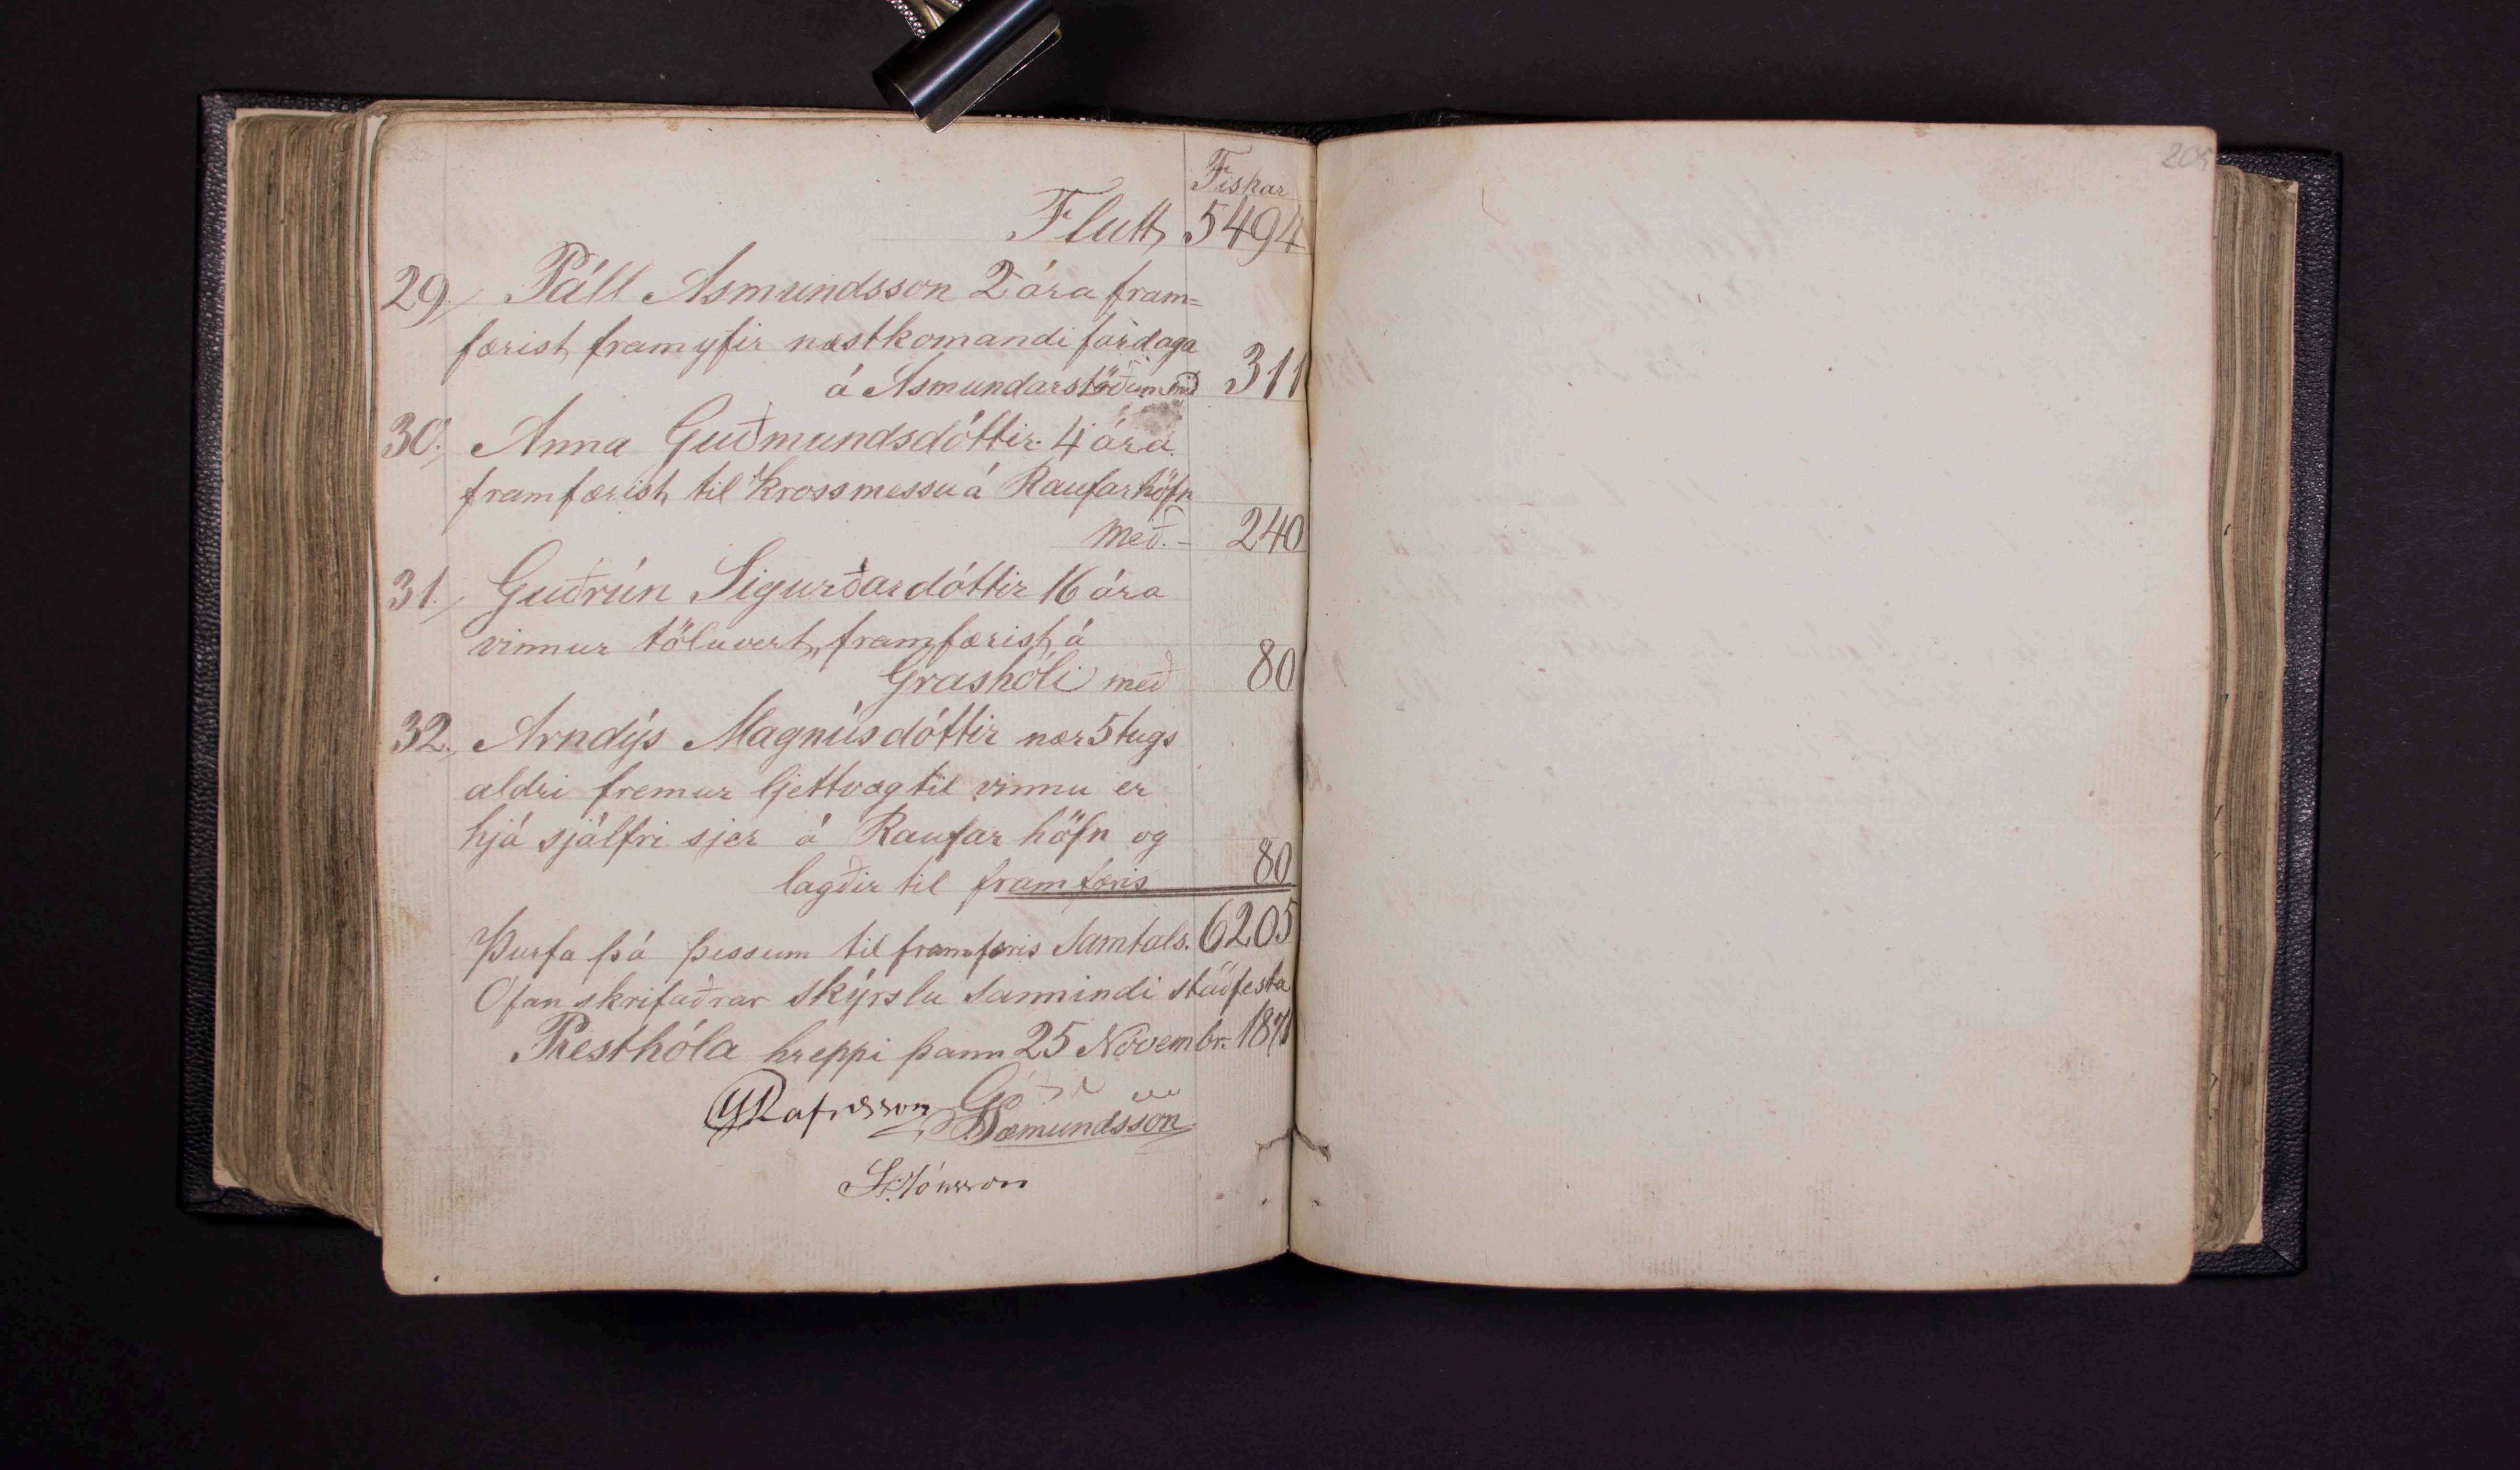 Fiskar
Flutt, 5494
29./ Páll Asmundsson 2 ára fram=
færist, framyfir næstkomandi fardaga
á Asmundarstöðum með 311
30./ Anna Guðmundsdóttir 4 ára
framfærist til Krossmessu á Raufarhöfn
með.- 240
31./ Guðrún Sigurðardóttir 16 ára
vinnur töluvert, framfærist á
Grashóli með 80
32./ Arndýs Magnúsdóttir nær 5tugs
aldri fremur ljettvæg til vinnu er
hjá sjálfri sjer á Raufar höfn og
lagðir til framfæris 80
Þurfa þá þessum til framfæris Samtals. 6205
Ofan skrifaðrar skýrslu sannindi staðfesta
Presthóla hreppi þann 25 Novembr. 1871
Rafnsson
Sæmundsson
St. Jónsson